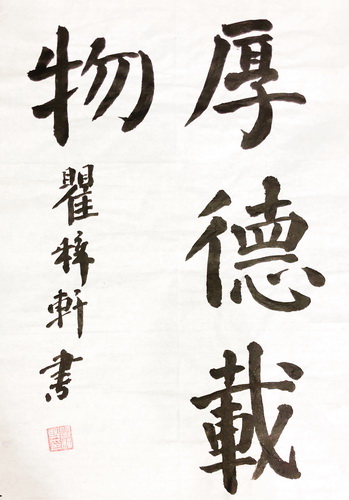 厚德載
物
瞿梓軒書